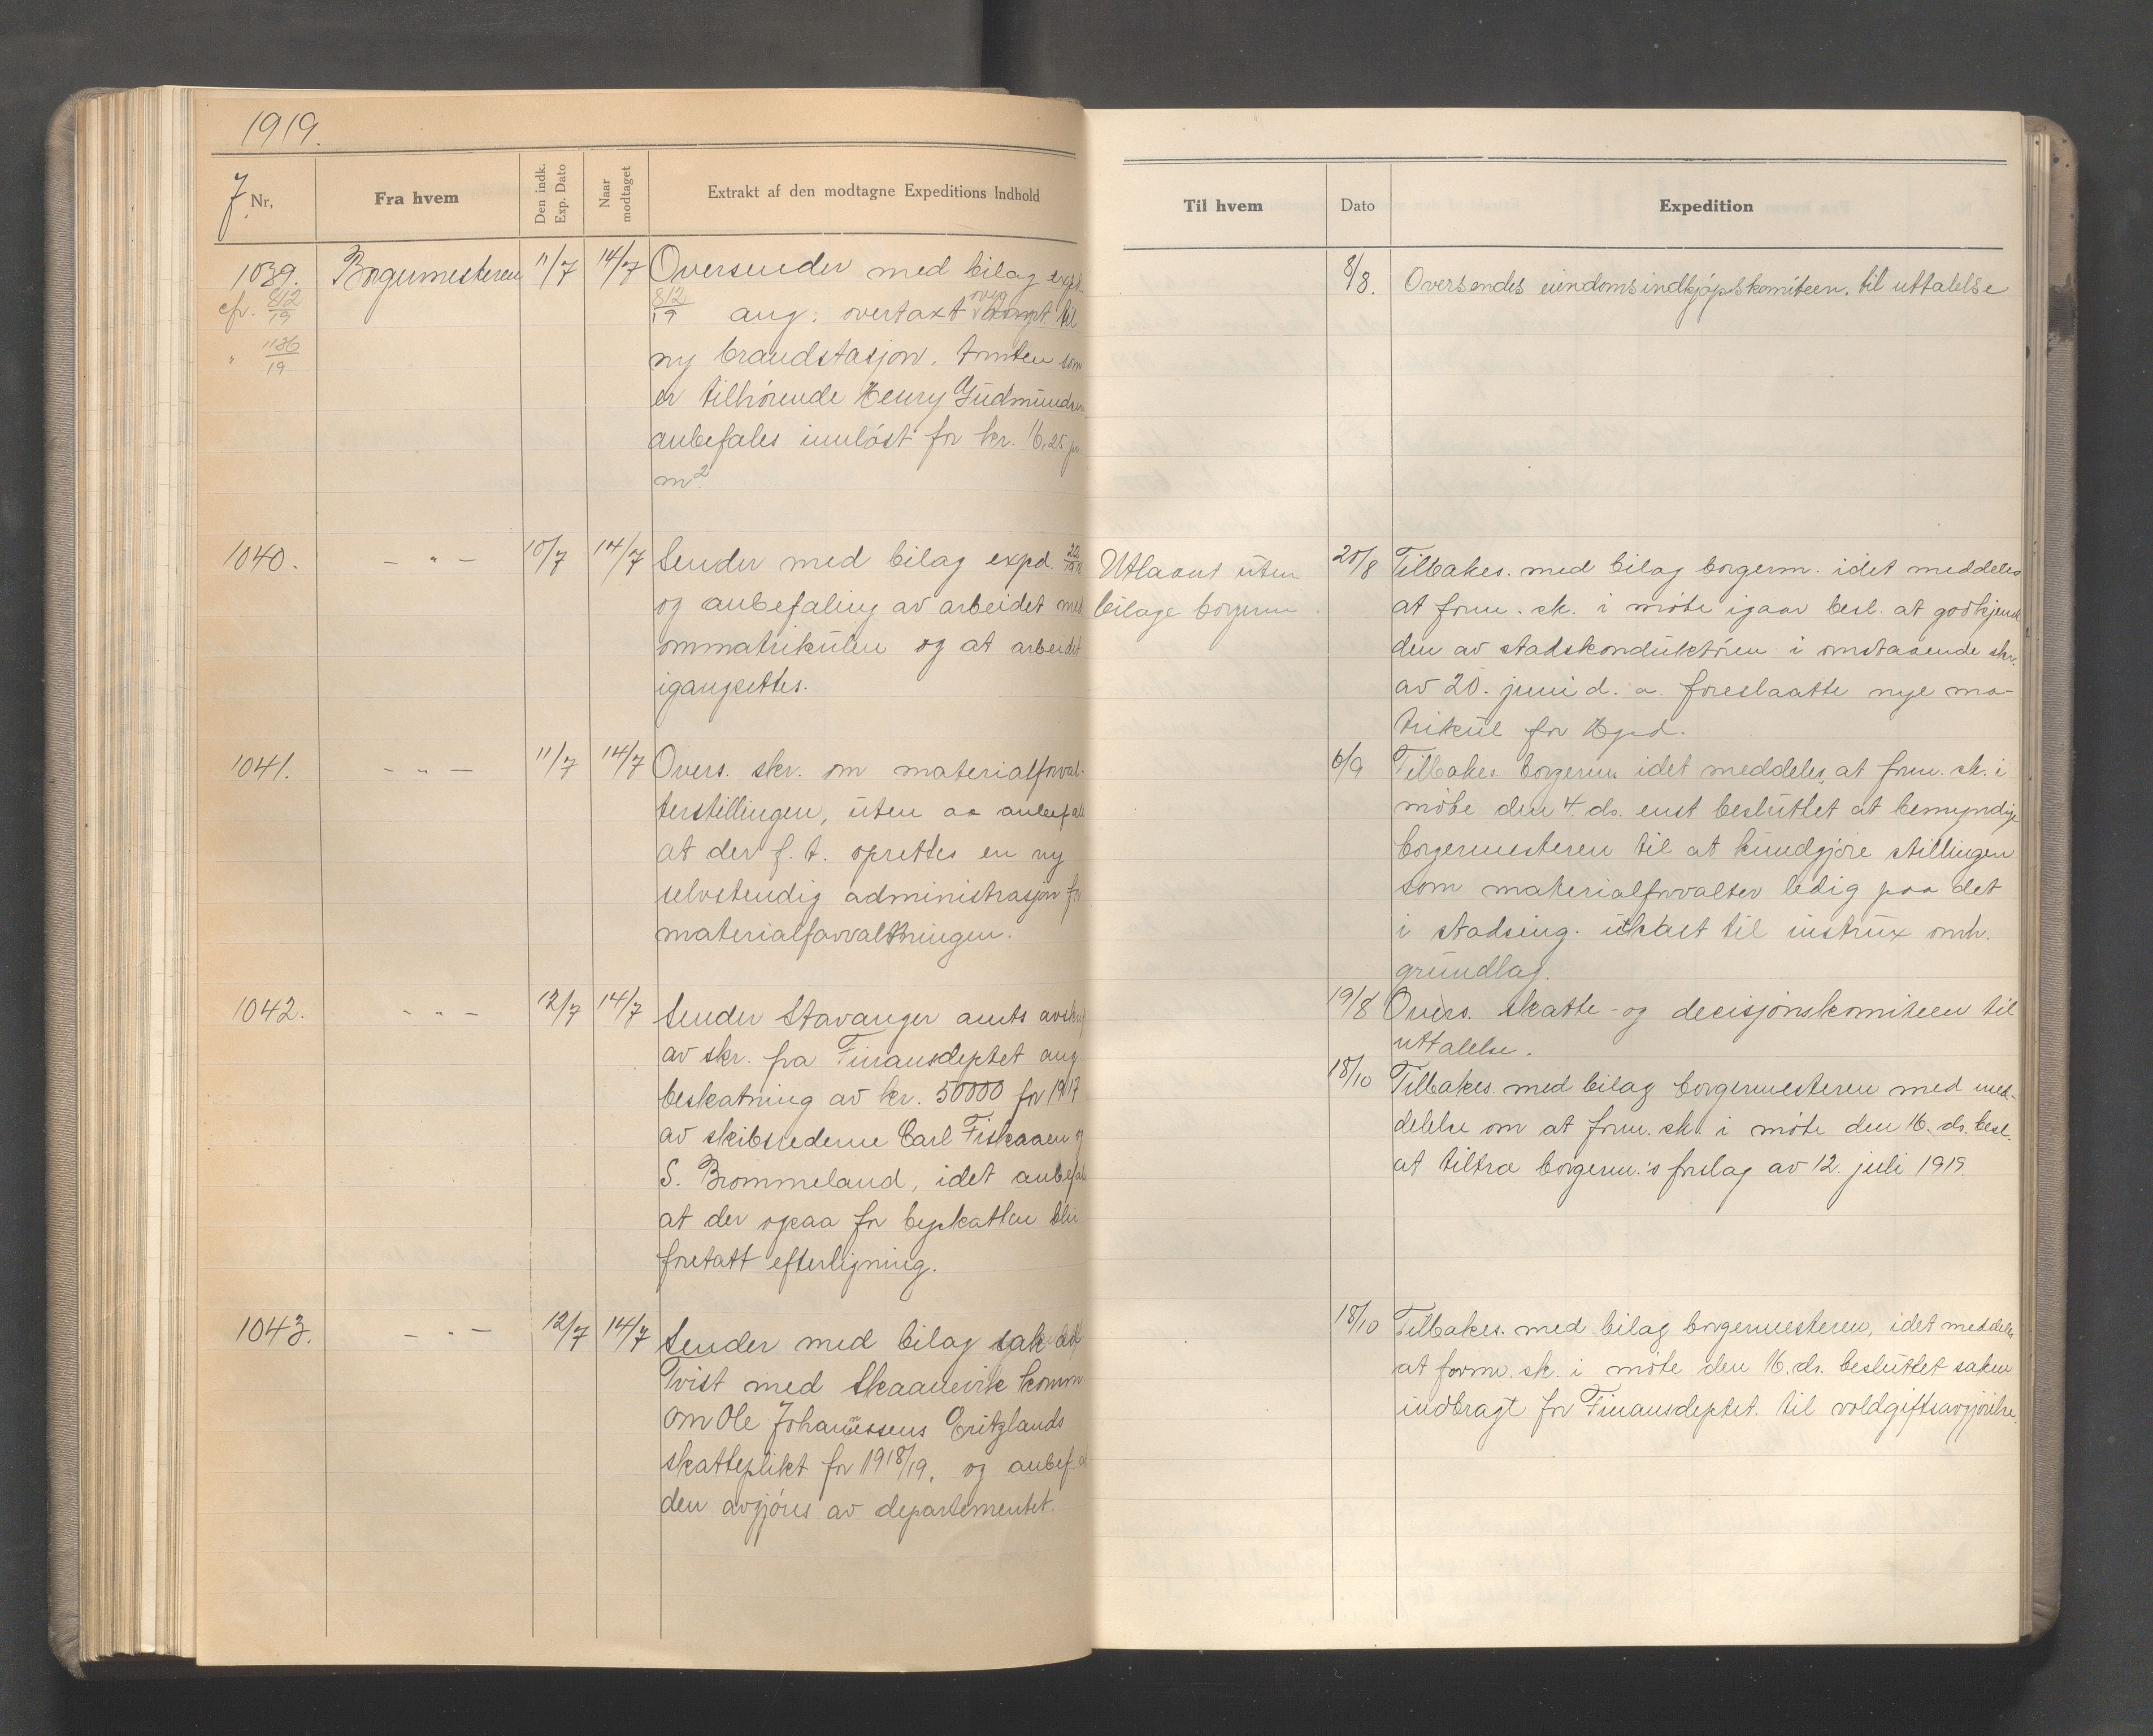 1919.
J. Nr.
Fra hvem
Den indk. Exp. Dato
Naar modtaget
Extrakt af den modtagne Expeditions Indhold
1039.
cfr. 812/19
" 1136/19
Borgermesteren
11/7
14/7
Oversender med bilag expd.
812/19 ang. overtaxt over tomt til
ny brandstasjon. Tomten som
er tilhørende Henry Gudmundsen
anbefales innløst for kr. 16,25 pr
m².
1040.
- " -
10/7
14/7
Sender med bilag expd.
og anbefaling av arbeidet med
ommatrikulen og at arbeidet
igangsettes.
1041.
- " -
11/7
14/7
Overs. skr. om materialforval-
terstillingen, uten aa anbefale
at der f. t. oprettes en ny
selvstendig administrasjon for
materialforvaltningen.
1042.
- " -
12/7
14/7
Sender Stavanger amts avskrift
av skr. fra Finansdeptet ang
beskatning av kr. 50000 for 1917
av skibsrederne Carl Fiskaaen og
S. Brommeland, idet anbefales
at der ogsaa for byskatten blir
foretatt efterligning.
1043.
- " -
12/7
14/7
Sender med bilag sak
Tvist med Skaanevik komm.
om Ole Johannessens Eritzlands
skatteplikt for 1918/19, og anbef. at
den avgjøres av departementet.
Til hvem
Dato
Expedition
8/8.
Oversendes eiendomsindkjøpskomiteen til uttalelse
Utlaant uten
bilage borgerm.
20/8
Tilbakes. med bilag borgerm. idet meddeles
at form. sk. i møte igaar besl. at godkjende
den av stadskonduktøren i omstaaende skr.
av 20. juni d. a. foreslaatte nye ma-
trikul for Hgsd.
6/9
Tilbakes. borgerm. idet meddeles, at form. sk. i
møte den 4. ds. enst besluttet at bemyndige
borgermesteren til at kundgjøre stillingen
som materialforvalter ledig paa det
i stadsing. utkast til instrux omh.
grundlag.
19/8
Overs. skatte- og decisjonskomiteen til
uttalelse.
18/10
Tilbakes. med bilag borgermesteren med med-
delelse om at form. sk. i møte den 16. ds. besl.
at tiltra borgerm.'s forslag av 12. juli 1919.
18/10
Tilbakes. med bilag borgermesteren, idet meddeles
at form. sk. i møte den 16. ds. besluttet saken
indbragt for Finansdeptet. til voldgiftsavgjørelse.